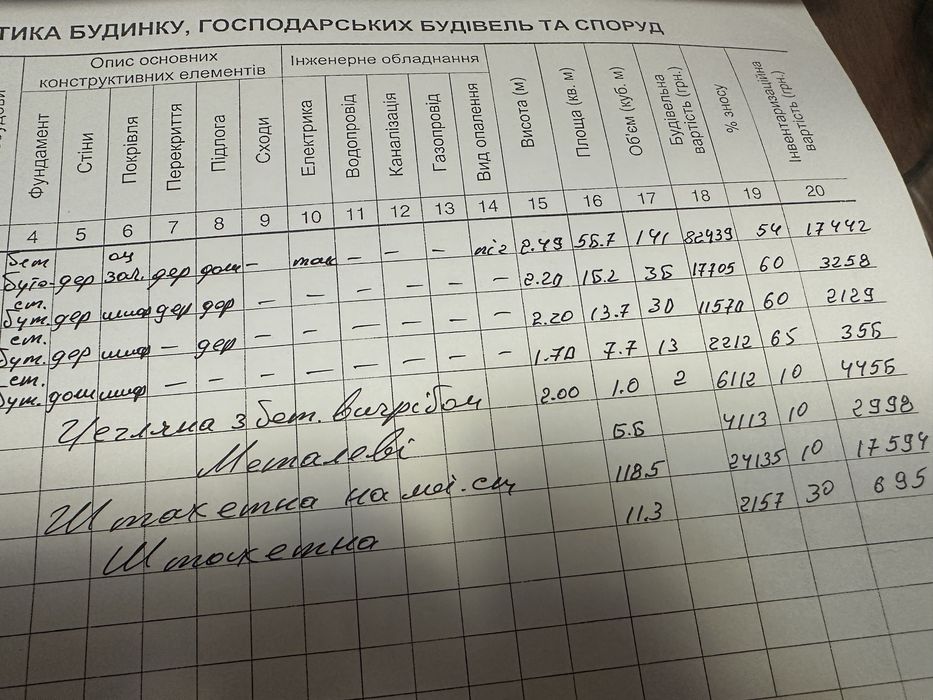 ТИКА БУДИНКУ, ГОСПОДАРСЬКИХ БУДІВЕЛЬ ТА СПОРУД
Опис основних конструктивних елементів Інженерне обладнання
Фундамент Стіни Покрівля Перекриття Підлога Сходи Електрика Водопровід Каналізація Газопровід Вид опалення Висота (м) Площа (кв. м) Об'єм (куб. м) Будівельна вартість (грн.) % зносу Інвентаризаційна вартість (грн.)
4 5 6 7 8 9 10 11 12 13 14 15 16 17 18 19 20
бет оц
буто дер зал. дер дощ – так – – – піг 2.49 56.7 141 82439 54 17442
ст.
бут. дер шиф дер дер – – – – – – 2.20 15.2 35 17705 60 3258
ст.
бут. дер шиф – дер – – – – – – 2.20 13.7 30 11570 60 2129
ст.
бут. дощ шиф – – – – – – – – 1.70 7.7 13 2212 65 355
Цегляна з бет. вигрібом 2.00 1.0 2 6112 10 4455
Металеві 5.5 4113 10 2998
Штакетна на мет. ст 118.5 24135 10 17594
Штакетна 11.3 2157 30 695